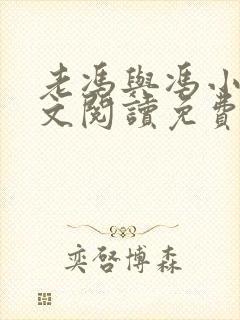 老馮與馮小
文閱讀免費
奕啓博森